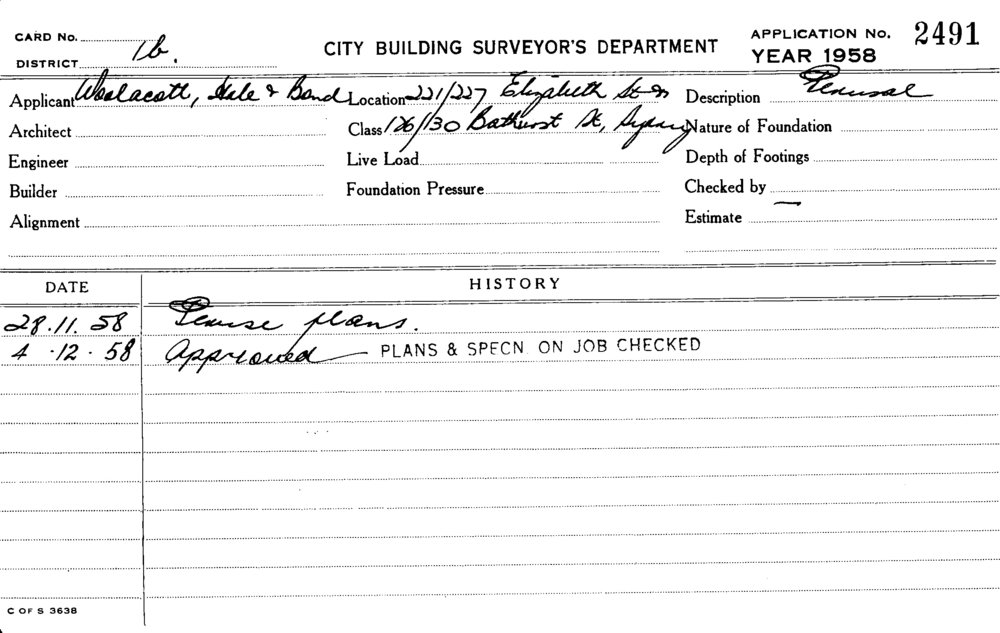 CARD No.
DISTRICT 1b.
CITY BUILDING SURVEYOR'S DEPARTMENT
APPLICATION No. 2491
YEAR 1958
Applicant Woolacott, Hale & Bond Location 221/227 Elizabeth St & Description Perusal
Architect Class 126/130 Bathurst St, Sydney Nature of Foundation
Engineer Live Load Depth of Footings
Builder Foundation Pressure Checked by
Alignment Estimate —
DATE HISTORY
28.11.58 Peruse plans.
4.12.58 Approved — PLANS & SPECN. ON JOB CHECKED
C OF S 3638